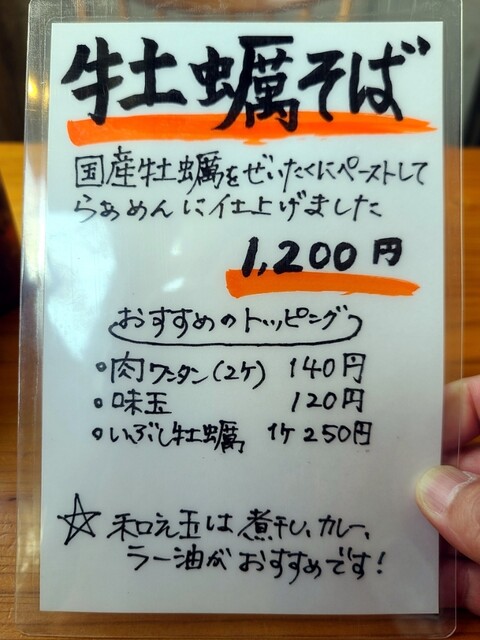 牡蠣そば
国産牡蠣をぜいたくにペーストして
らぁめんに仕上げました
1,200円
おすすめのトッピング
・肉ワンタン(2ケ) 140円
・味玉 120円
・いぶし牡蠣 1ケ 250円
☆和え玉は煮干し、カレー、
ラー油がおすすめです!